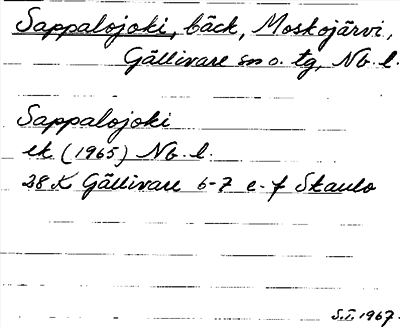 Sappalojoki, bäck, Moskojärvi,
Gällivare sn o. tg, Nb. l.
Sappalojoki
ek (1965) Nb. l.
28 K Gällivare 6-7 e-f Skaulo
S.I. 1967.